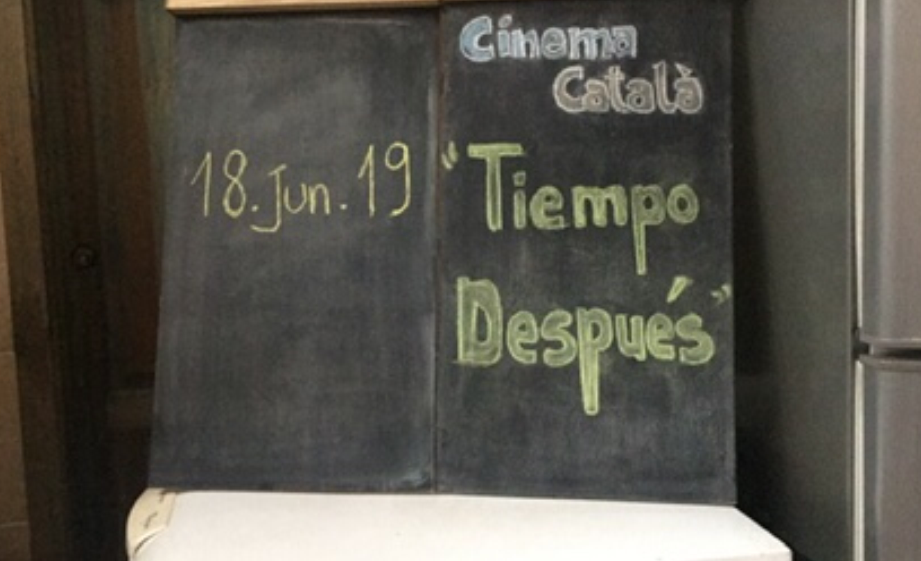 18.Jun.19
Cinema
Català
“Tiempo
Después”